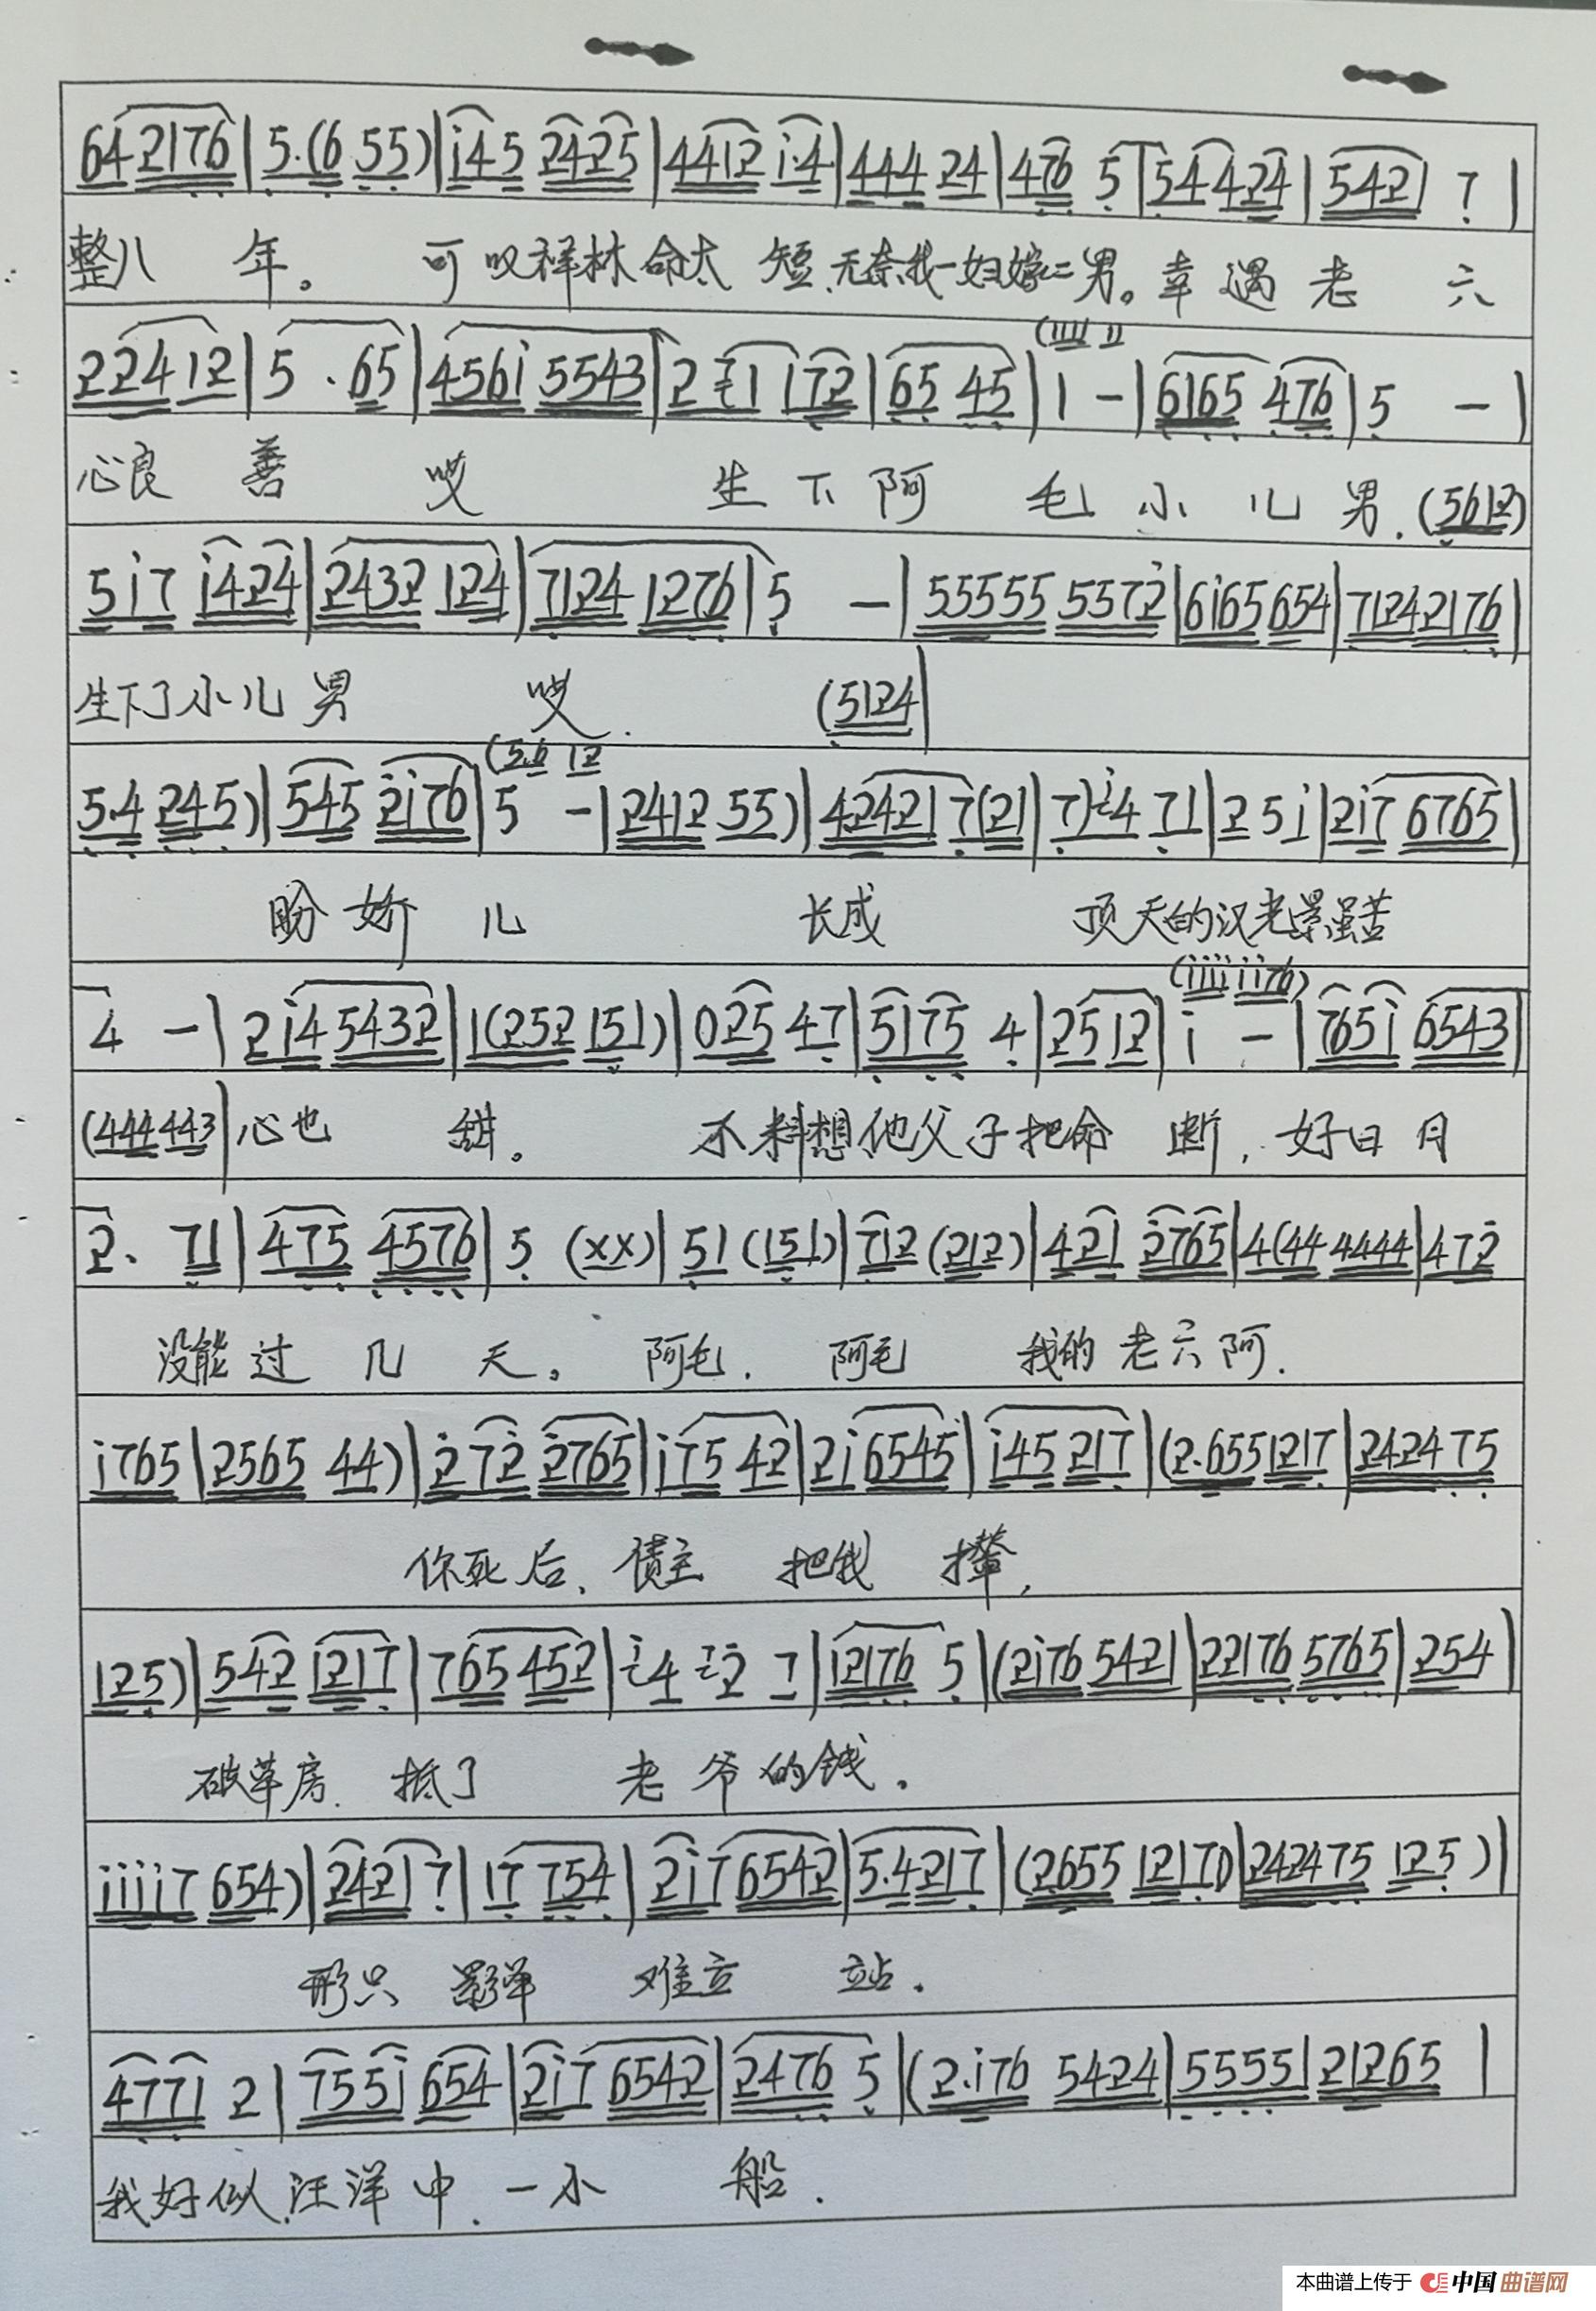 64 2176 | 5.(6 55) | i45 2425 | 4412 i.4 | 444 24 | 476 5 | 54 424 | 5421 7 |
整八 年。 可叹祥林命太 短,无奈我一妇嫁二男。幸遇老 六
(1111 11
22412 | 5 . 65 | 456i 5543 | 2 1 172 | 65 45 | 1 - | 6165 476 | 5 - |
心良 善 哎 生下阿 毛小儿男.(5612)
5i7 i424 | 2432 124 | 7124 1276 | 5 - | 55555 5572 | 6i65 654 | 7124 2176 |
生下了小儿男 哎. (5124|
(5.6 12
5.4 245) | 545 2i76 | 5 - | 2412 55) | 42421 7(21 | 7)i4 71 | 2 5 i | 2i7 6765 |
盼娇儿 长成 顶天的汉光景虽苦
(iiii ii76)
4 - | 2i4 5432 | 1(252 151) | 025 47 | 5175 4 | 2512 | i - | 765i 6543 |
(444 443| 心也 甜。 不料想他父子把命 断,好日月
2. 71 | 475 4576 | 5 (xx) | 51 (151) | 712 (212) | 421 2765 | 4(44 4444 | 472
没能过几天。阿毛. 阿毛 我的老六阿.
i765 | 2565 44) | 272 2765 | i75 42 | 2i 6545 | i45 217 | (2.655 1217 | 2424 75
你死后,债主 把我 撵,
125) | 542 1217 | 765 452 | i4 2 7 | i2176 5 | (2i76 5421 | 22176 5765 | 254 |
破草房. 抵了 老爷的钱.
iiii7 654) | 2421 7 | 17 754 | 2i7 6542 | 5.4 217 | (2655 1217) | 242475 125) |
形只 影单 难立 站.
4771 2 | 755i 654 | 2i7 6542 | 2476 5 | (2.i76 5424 | 5555 | 21265 |
我好似汪洋中.一小 船.
本曲谱上传于 中国曲谱网